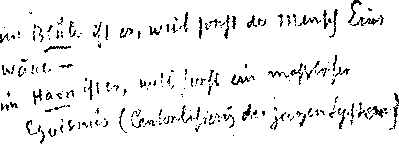 im Blute ist er, weil sonst der Mensch Eins
wäre —
im Harn ist er, weil sonst ein maßloser
Egoismus (Centralisierung des ganzen Systems)